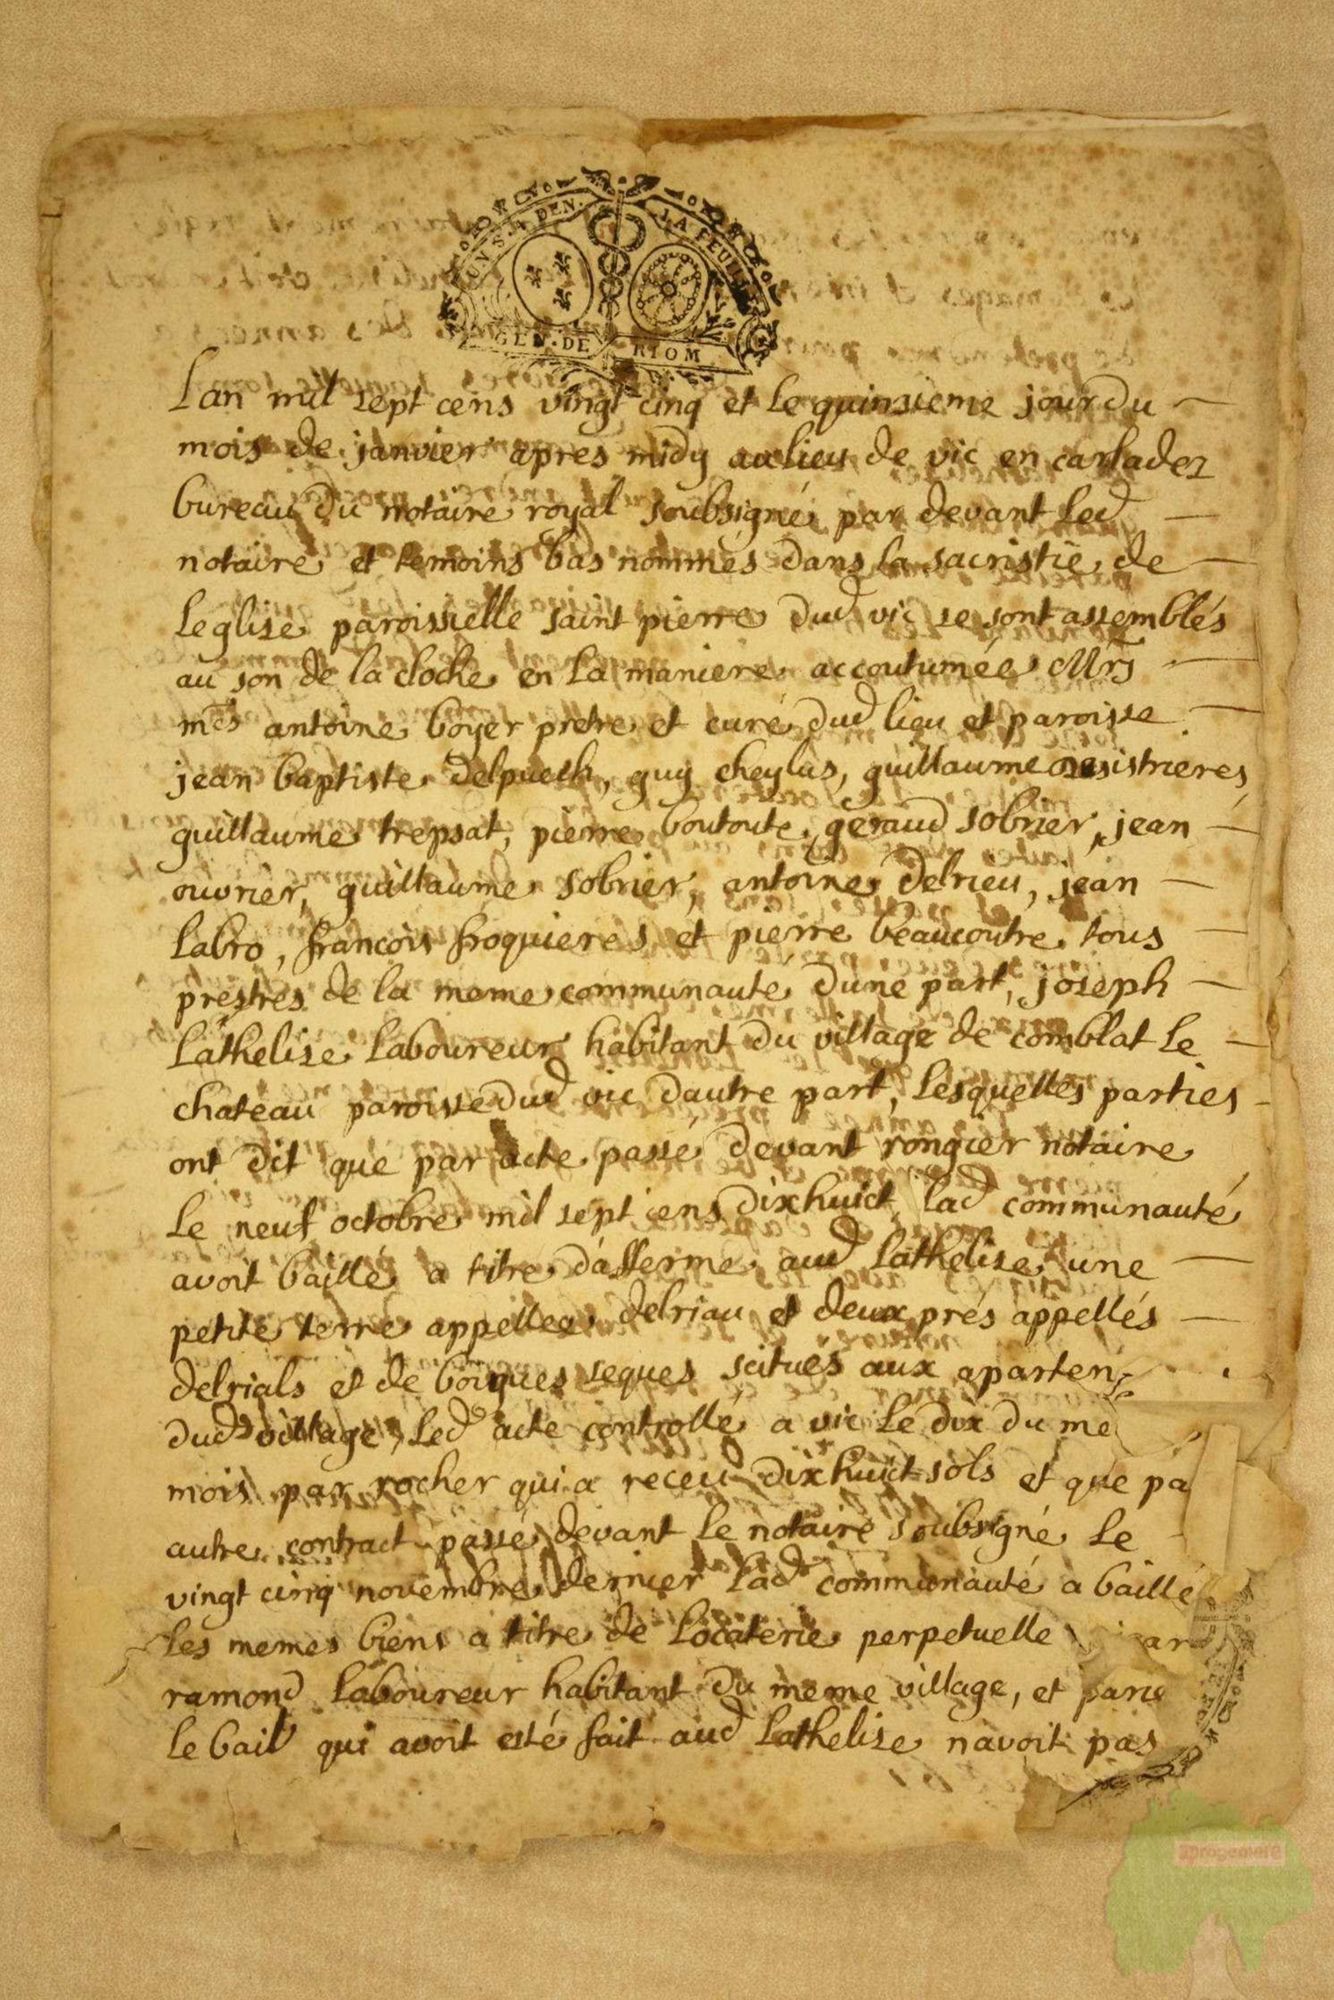 UN S. 4 DEN. LA FEUILLE
GEN. DE RIOM
Lan mil sept cens vingt cinq et le quinsieme jour du
mois de janvier apres midy au lieu de vic en carladez
bureau du notaire royal soubsigné par devant led
notaire et temoins bas nommés dans la sacristie de
Leglise paroissielle saint pierre dud vic se sont assemblés
au son de la cloche en la maniere accoutumée Mrs
mes antoine boyer pretre et curé dud lieu et paroisse
jean baptiste delpuech, guy cheylus, guillaume sistrieres,
guillaume trepsat, pierre boutoute, geraud sobrier, jean
ouvrier, guillaume sobrier, antoine delrieu, jean
Labro, francois froquieres et pierre beaucoutre tous
prestres de la meme communauté dune part, joseph
Lathelise Laboureur habitant du village de comblat le
chateau paroisse dud vic dautre part, Lesquelles parties
ont dit que par acte passé devant rongier notaire
Le neuf octobre mil sept cens dixhuict lad communauté
avoit baillé a titre dafferme aud Lathelise une
petite terre appellee delriau et deux prés appellés
delrials et de boigues seques scitués aux aparten
dud village, Led acte controllé a vic le dix du me
mois par rocher qui a receu dixhuict sols et que pa
autre contract passé devant le notaire soubsigné le
vingt cinq novembre dernier lad communauté a baillé
Les memes biens a titre de Locaterie perpetuelle
ramond Laboureur habitant du meme village, et parce
Le bail qui avoit esté fait aud Lathelise navoit pas
aprogemere